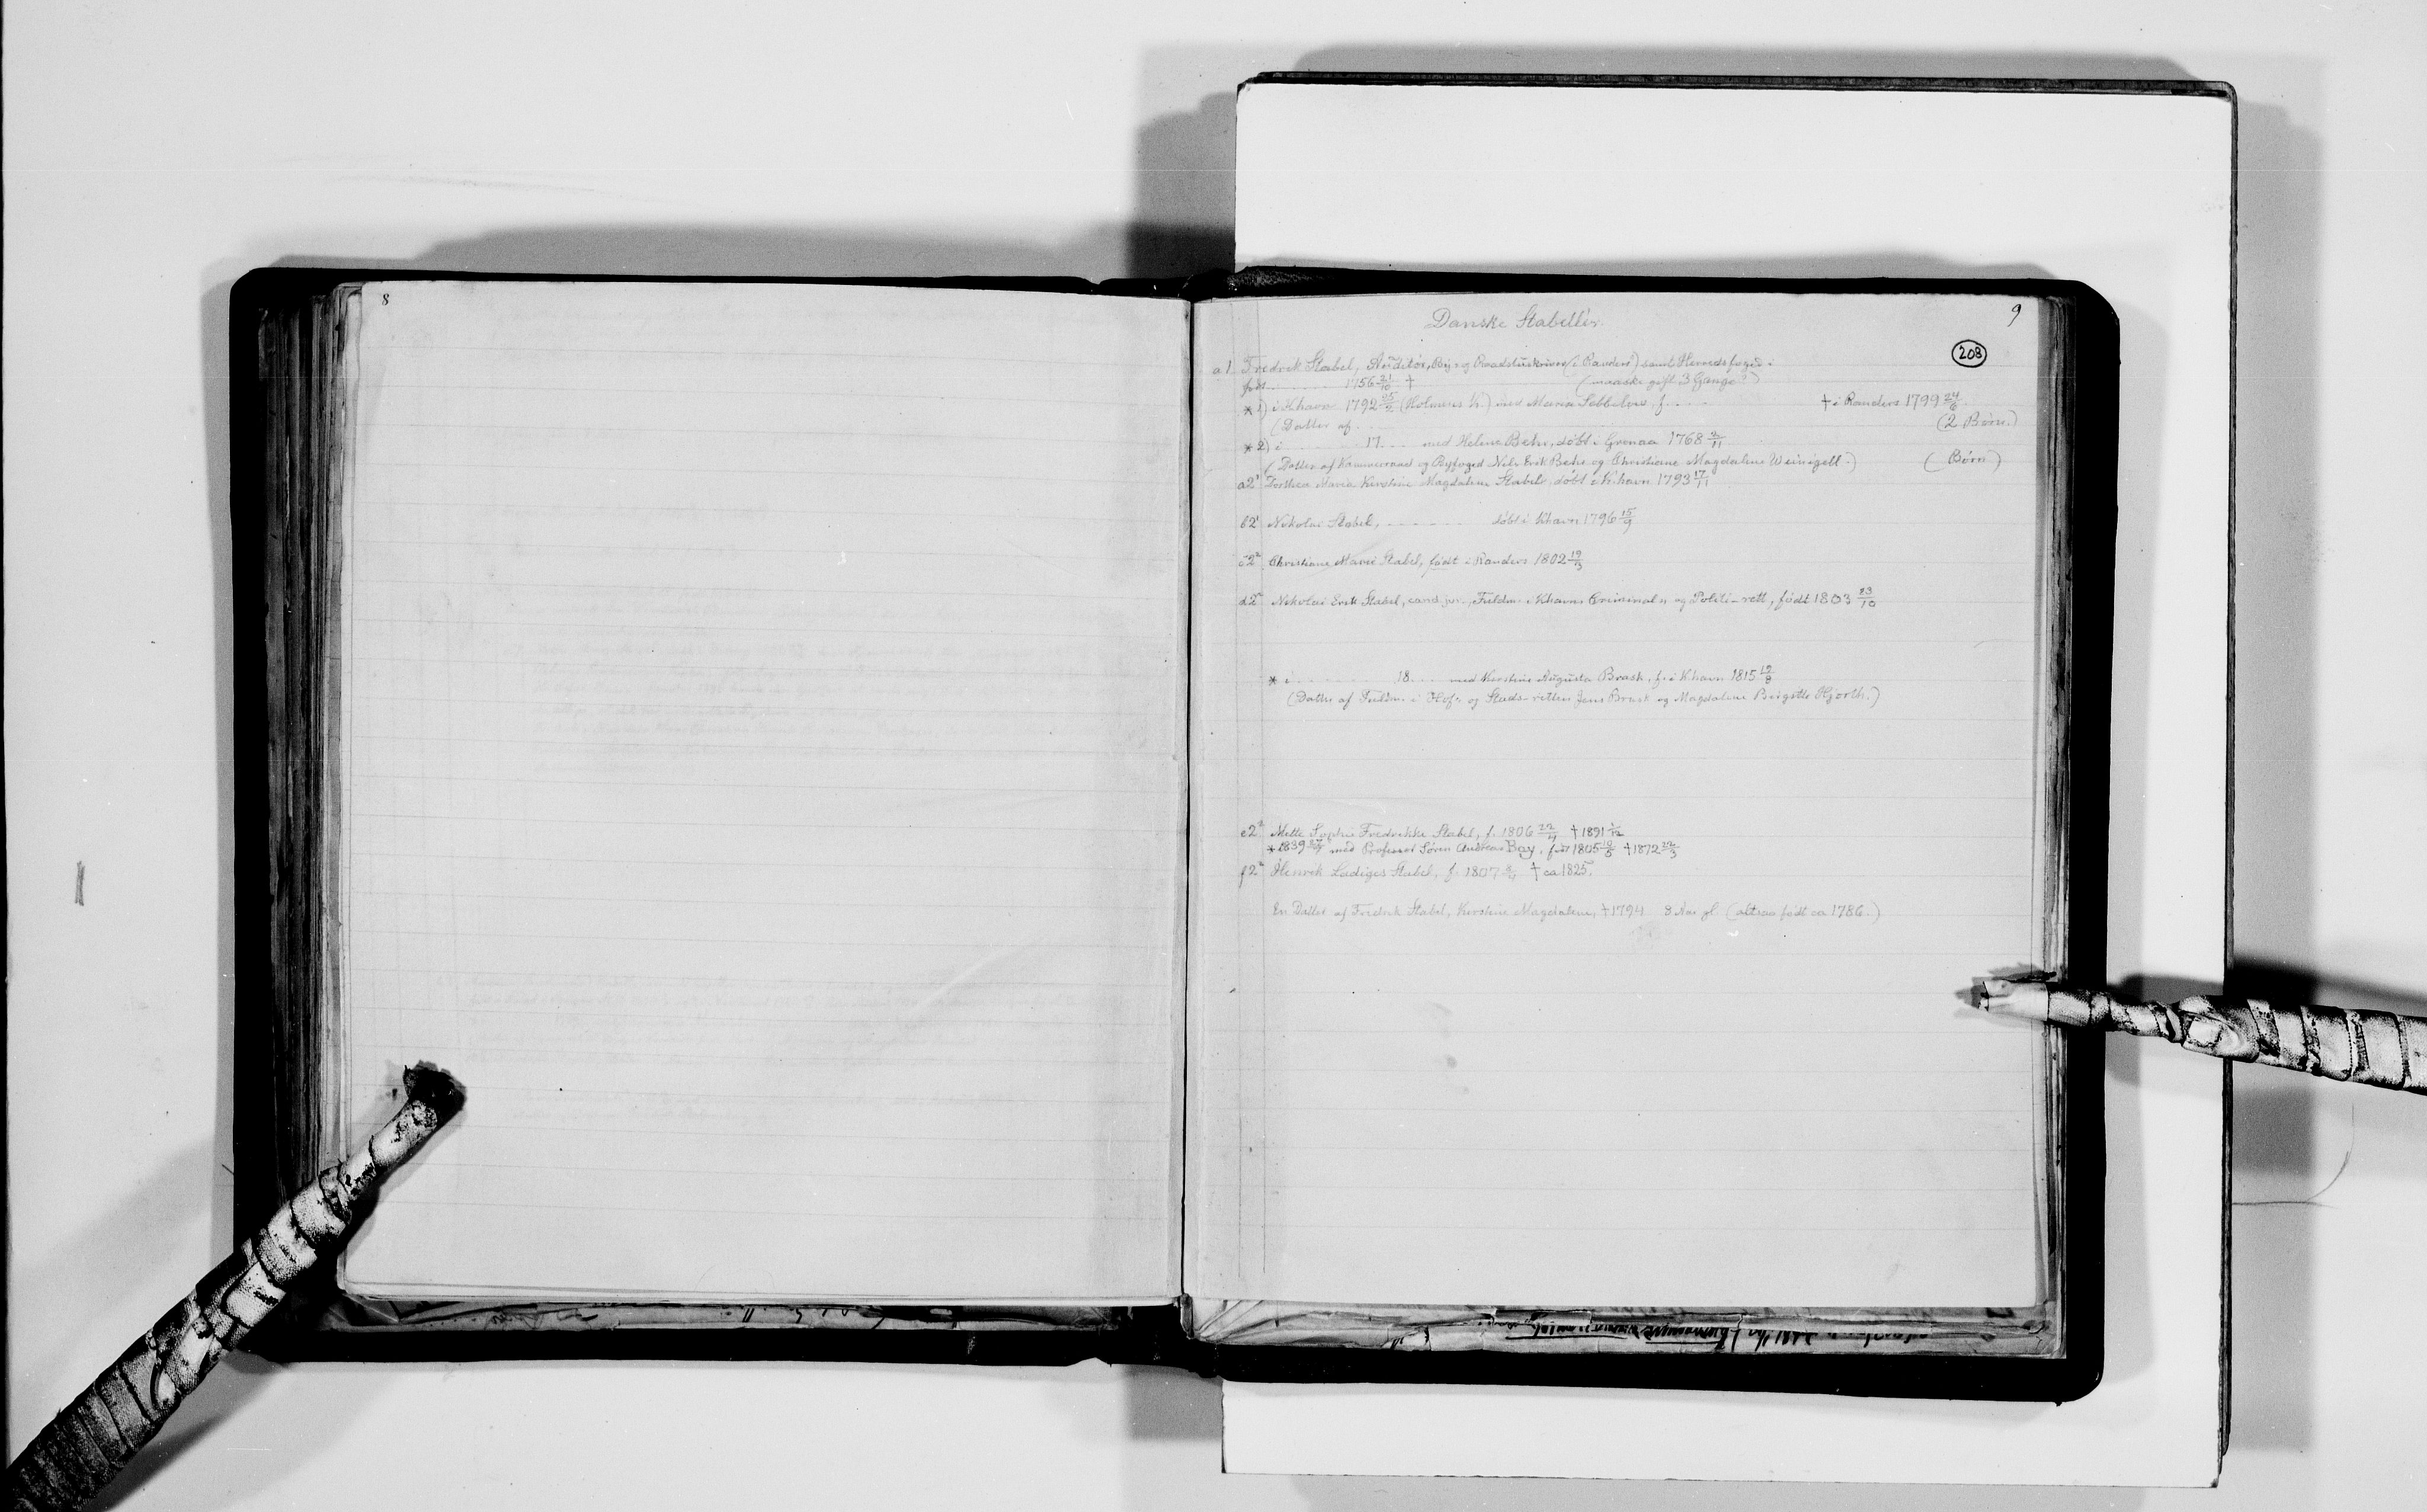 8
9
Danske Stabell'er.
208
a1 Fredrik Stabel, Auditør, By- og Raadstuskriver (i Randers) samt Herredsfoged i
født ........ 1756 21/10 † (maaske gift 3 Gange?)
* 1) i Khavn 1792 25/2 (Holmens K.) med Maria Sebbelow, f. .... † i Randers 1799 24/6
(Datter af .... (2 Børn.)
* 2) i ........ 17.... med Helene Behr, døbt i Grenaa 1768 2/11
(Datter af Kammerraad og Byfoged Niels Erik Behr og Christiane Magdalene Weinigell.) ( Børn)
a2¹ Dorthea Maria Kirstine Magdalene Stabel, døbt i K.havn 1793 17/11
b2¹ Nikolai Stabel, ........ døbt i Khavn 1796 15/9
c2² Christiane Marie Stabel, født i Randers 1802 19/3
d2² Nikolai Erik Stabel, cand. jur., Fuldm. i Khavns Criminal- og Politi-rett, født 1803 23/10
* i ........ 18.... med Kirstine Augusta Brask, f. i Khavn 1815 19/8
(Datter af Fuldm. i Hof- og Stads-retten Jens Brask og Magdalene Birgitte Hjorth.)
e2² Mette Sophie Fredrikke Stabel, f. 1806 22/4 † 1891
* 1839 med Professor Søren Andreas Bay, født 1805 † 1872 22/3
f2² Henrik Ladiges Stabel, f. 1807 † ca 1825.
En Datter af Fredrik Stabel, Kirstine Magdalene, † 1794 8 Aar gl. (altsaa født ca 1786.)